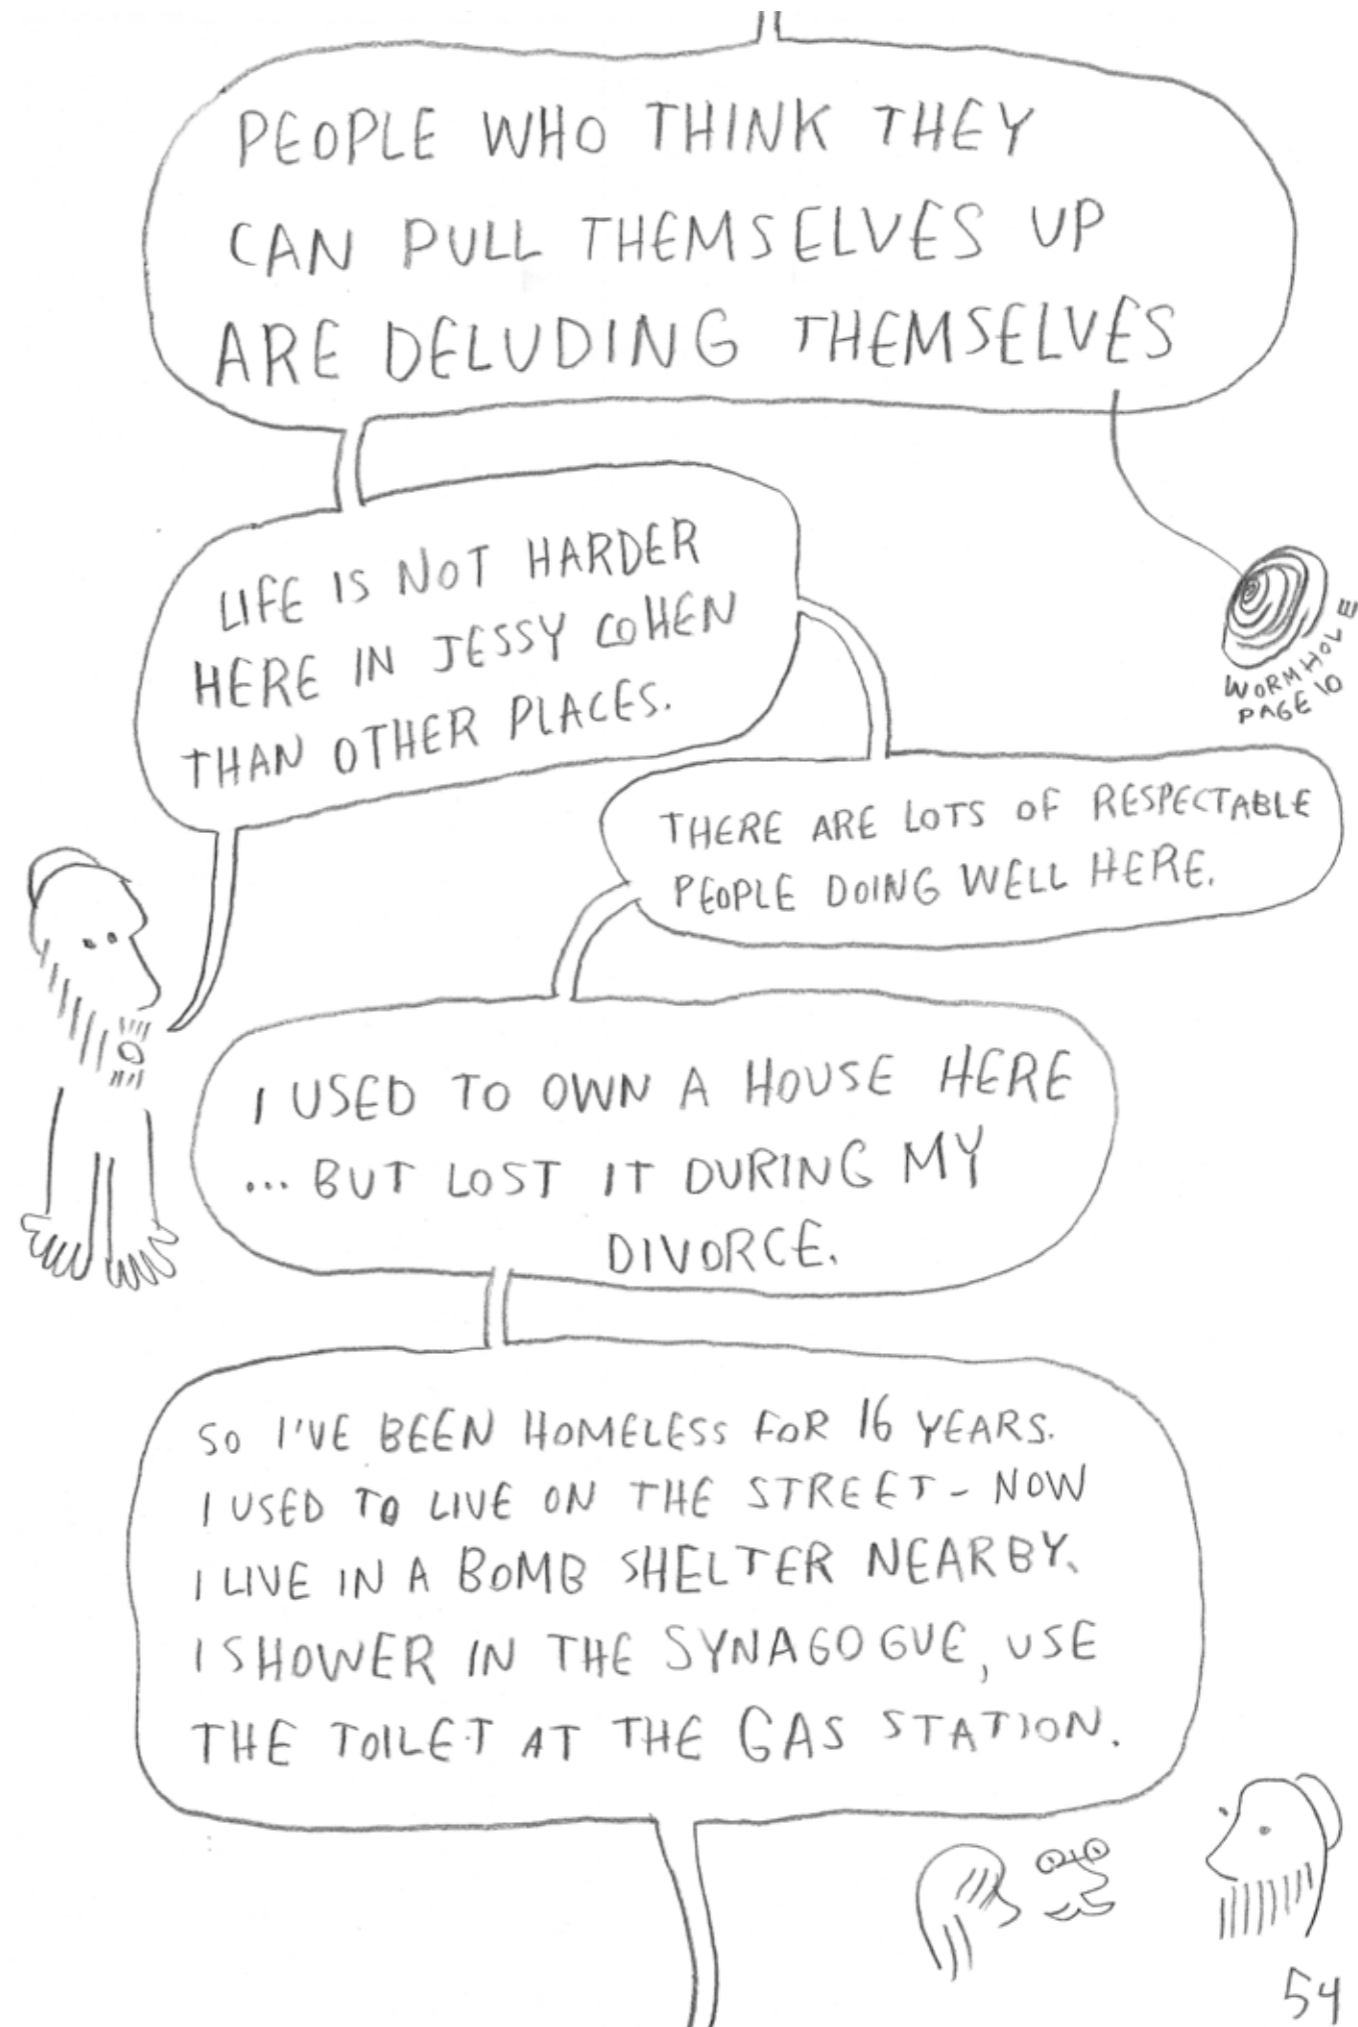 PEOPLE WHO THINK THEY
CAN PULL THEMSELVES UP
ARE DELUDING THEMSELVES
LIFE IS NOT HARDER
HERE IN JESSY COHEN
THAN OTHER PLACES.
WORMHOLE
PAGE 10
THERE ARE LOTS OF RESPECTABLE
PEOPLE DOING WELL HERE.
I USED TO OWN A HOUSE HERE
... BUT LOST IT DURING MY
DIVORCE.
SO I'VE BEEN HOMELESS FOR 16 YEARS.
I USED TO LIVE ON THE STREET - NOW
I LIVE IN A BOMB SHELTER NEARBY.
I SHOWER IN THE SYNAGOGUE, USE
THE TOILET AT THE GAS STATION.
54